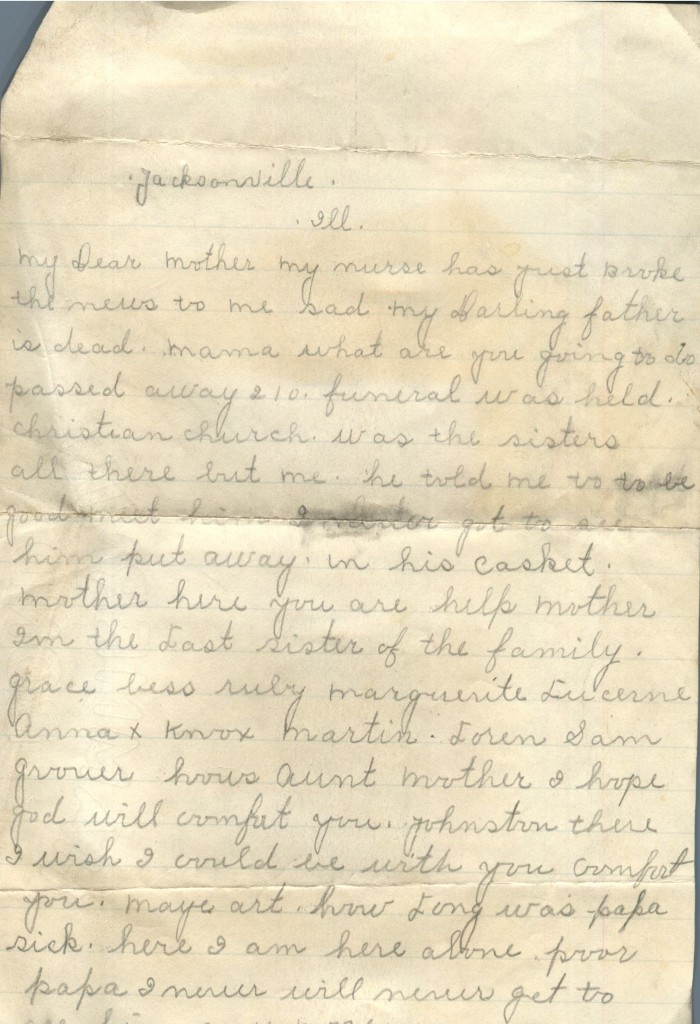 Jacksonville.
Ill.
My Dear mother my nurse has just broke
the news to me sad my Darling father
is dead. mama what are you going to do
passed away 210. funeral was held.
christian church. was the sisters
all there but me. he told me to to be
good meet him I never got to see
him put away. in his casket.
mother here you are help mother
Im the Last sister of the family.
grace bess ruby marguerite Lucerne
Anna x Knox martin. Loren Sam
grover hows aunt mother I hope
god will comfut you. Johnston there
I wish I could be with you comfort
you. maye art. how Long was papa
sick. here I am here alone. poor
papa I never will never get to